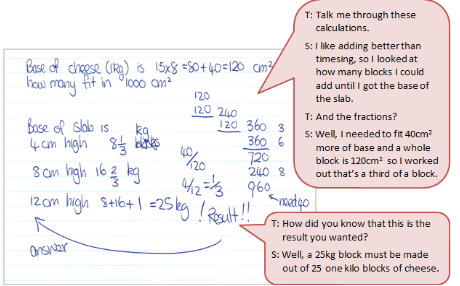 Base of cheese (1kg) is 15x8=80+40=120 cm²
how many fit in 1000 cm²
120
120 240
120 360 3
360 6
720
240 8
960
need 40
Base of slab is kg
4cm high 8 1/3 blocks
8cm high 16 2/3 kg
12cm high 8+16+1=25kg ! Result!!
40/120
4/12=1/3
answer
T: Talk me through these
calculations.
S: I like adding better than
timesing, so I looked at
how many blocks I could
add until I got the base of
the slab.
T: And the fractions?
S: Well, I needed to fit 40cm²
more of base and a whole
block is 120cm² so I worked
out that's a third of a block.
T: How did you know that this is the
result you wanted?
S: Well, a 25kg block must be made
out of 25 one kilo blocks of cheese.